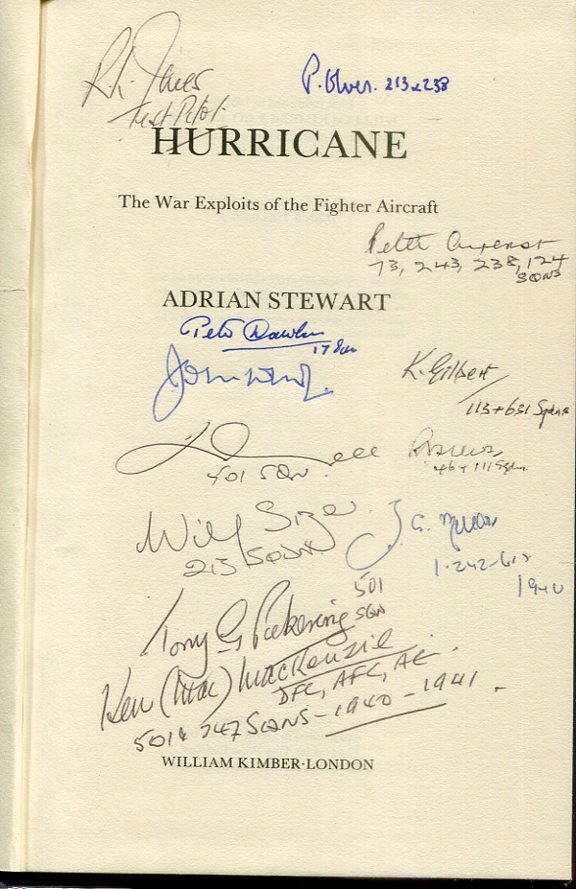 Test Pilot
P. Olver. 213 & 238
HURRICANE
The War Exploits of the Fighter Aircraft
Peter
73, 243, 238, 124
SQNS
ADRIAN STEWART
Pete
17 Sqn
K. Gilbert
113 + 681 Sqdns
501 SQN.
46 + 111 Sqn
Wilf Sizer
213 SQDN
J. G.
1 · 242 - 615
1940
501
SQN
Tony G Pickering
Ken (Mac) MacKenzie
DFC, AFC, AE.
501 & 247 SQNS - 1940 - 1941 -
WILLIAM KIMBER·LONDON